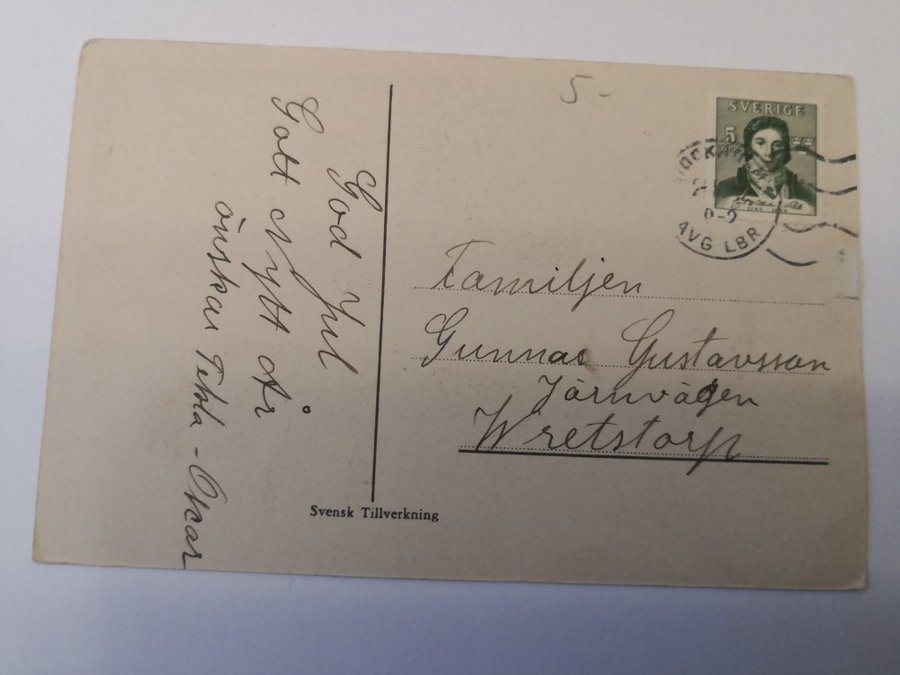 God Jul
Gott Nytt År
önskar Tekla - Oscar
5-
SVERIGE
5
AVG LBR
Familjen
Gunnar Gustavsson
Järnvägen
Wretstorp
Svensk Tillverkning